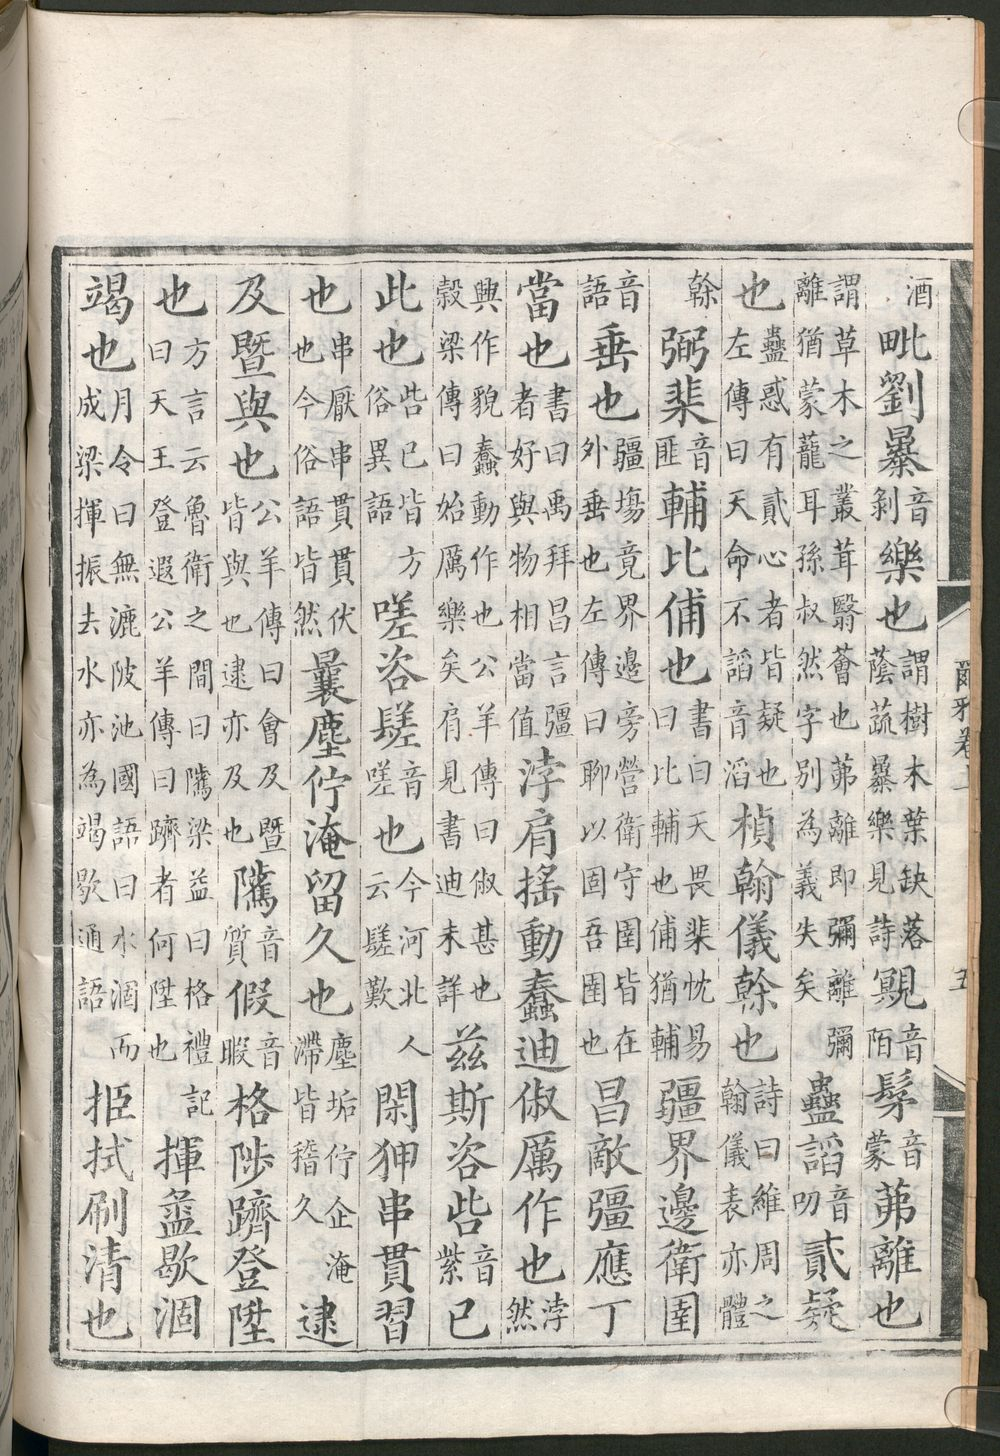 酒毗劉暴音剝樂也謂樹木葉缺落蔭蔬暴樂見詩覭音陌髳音蒙茀離也
謂草木之叢茸翳薈也茀離即彌離彌離猶蒙蘢耳孫叔然字別為義失矣蠱謟音叨貳疑
也蠱惑有貳心者皆疑也左傳曰天命不謟音滔楨翰儀榦也詩曰維周之翰儀表亦體
榦弼棐音匪輔比俌也書曰天畏棐忱易曰比輔也俌猶輔疆界邊衛圉
音語垂也疆場竟界邊旁營衛守圉皆在外垂也左傳曰聊以固吾圉也昌敵彊應丁
當也書曰禹拜昌言彊者好與物相當值浡肩搖動蠢迪俶厲作也浡然
興作貌蠢動作也公羊傳曰俶甚也穀梁傳曰始厲樂矣肩見書迪未詳茲斯咨呰音紫已
此也呰已皆方俗異語嗟咨䰈音嗟也今河北人云䰈歎閑狎串貫習
也串厭串貫貫伏也今俗語皆然曩塵佇淹留久也塵垢佇企淹滯皆稽久逮
及暨與也公羊傳曰會及暨皆與也逮亦及也騭音質假音暇格陟躋登陞
也方言云魯衛之間曰騭梁益曰格禮記曰天王登遐公羊傳曰躋者何陞也揮盝歇涸
竭也月令曰無漉陂池國語曰水涸而成梁揮振去水亦為竭歇通語挋拭刷清也
爾雅卷上
五